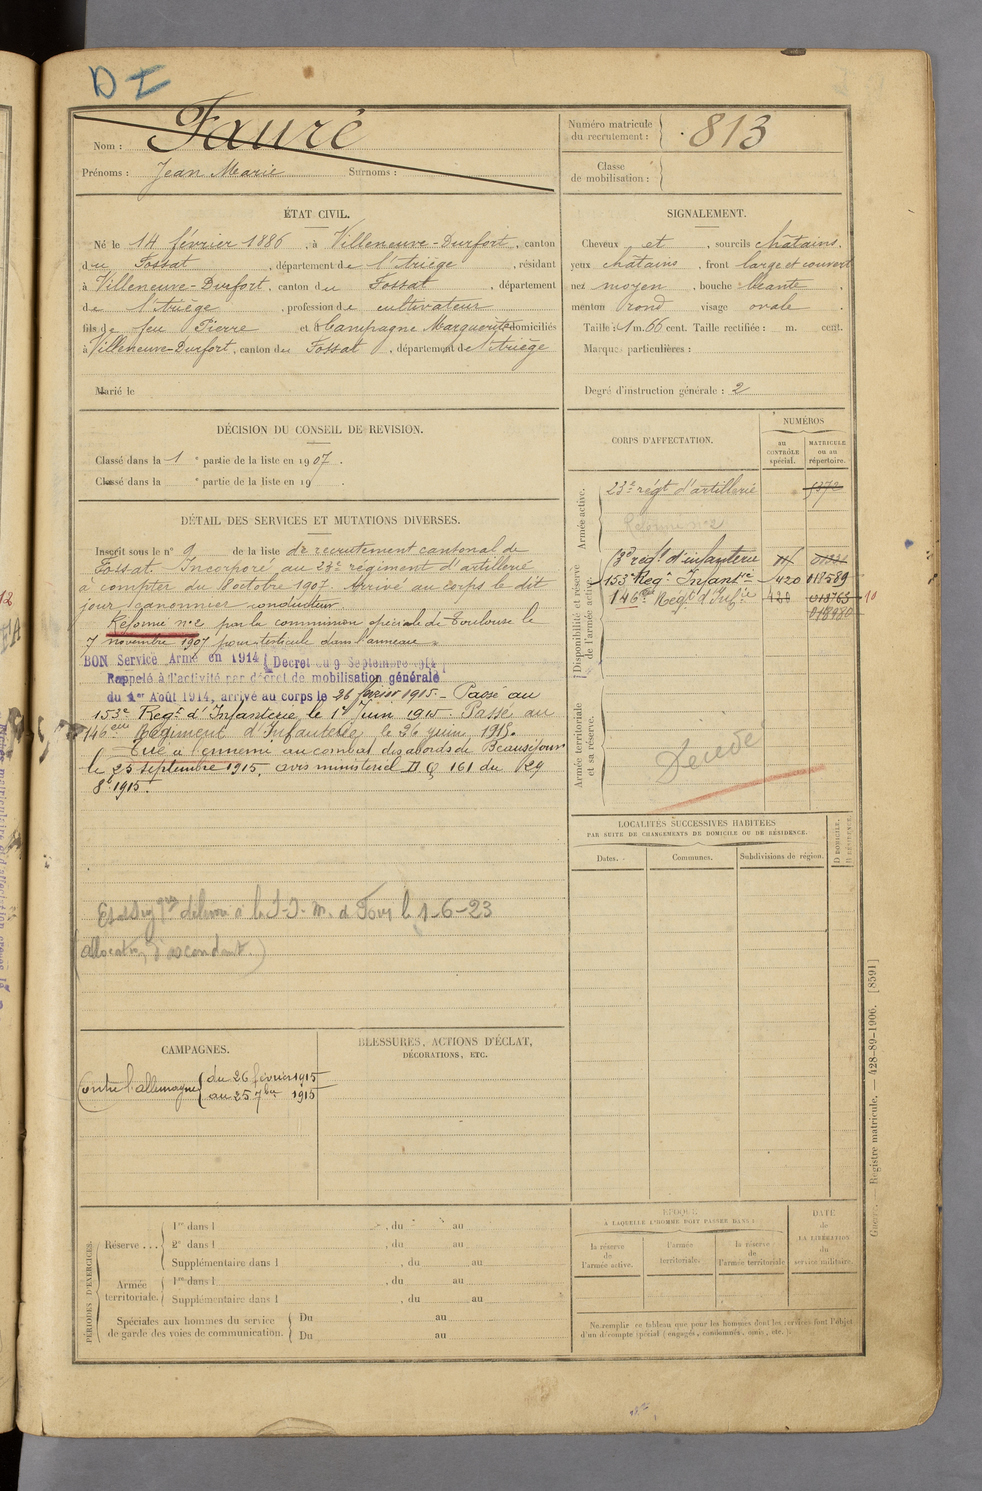 DI
Nom : Fauré
Prénoms : Jean Marie Surnoms :
Numéro matricule du recrutement : 813
Classe de mobilisation :
ÉTAT CIVIL.
Né le 14 février 1886, à Villeneuve-Durfort, canton
du Fossat, département de l'Ariège, résidant
à Villeneuve-Durfort, canton du Fossat, département
de l'Ariège, profession de cultivateur
fils de feu Pierre et de Campagne Marguerite domiciliés
à Villeneuve-Durfort, canton du Fossat, département de l'Ariège
Marié le
SIGNALEMENT.
Cheveux et , sourcils châtains.
yeux châtains, front large et couvert
nez moyen, bouche béante,
menton rond visage ovale.
Taille : 1 m. 66 cent. Taille rectifiée : m. cent.
Marques particulières :
Degré d'instruction générale : 2
DÉCISION DU CONSEIL DE REVISION.
Classé dans la 1e partie de la liste en 1907.
Classé dans la e partie de la liste en 19 .
DÉTAIL DES SERVICES ET MUTATIONS DIVERSES.
Inscrit sous le n° 9 de la liste de recrutement cantonal de
Fossat. Incorporé au 23e régiment d'artillerie
à compter du 8 octobre 1907. Arrivé au corps le dit
jour, canonnier conducteur.
Réformé n°2 par la commission spéciale de Toulouse le
7 novembre 1907 pour testicule dans l'anneau.
BON Service Armé en 1914 (Décret du 9 Septembre 1914)
Rappelé à l'activité par décret de mobilisation générale
du 1er Août 1914, arrivé au corps le 26 février 1915 - Passé au
153e Regt d'Infanterie le 1er Juin 1915. Passé au
146eme Régiment d'Infanterie, le 26 juin 1915.
Tué à l'ennemi au combat des abords de Beauséjour
le 25 septembre 1915, avis ministériel 161 du 29
8e 1915.
délivré à M. de Foix le 1-6-23
(allocation d'ascendant.)
CORPS D'AFFECTATION.
NUMÉROS
AU CONTRÔLE spécial.
MATRICULE ou au répertoire.
Armée active.
23e régt d'artillerie 5372
Réformé n°2
Disponibilité et réserve de l'armée active.
régt d'infanterie
153e Regt Infantrie 420 018589
146eme Régt d'Infie 420 018763 10
018980
Armée territoriale et sa réserve.
Décédé
LOCALITÉS SUCCESSIVES HABITÉES
PAR SUITE DE CHANGEMENTS DE DOMICILE OU DE RÉSIDENCE.
Dates. Communes. Subdivisions de région.
D DOMICILE. R RÉSIDENCE.
CAMPAGNES.
Contre l'allemagne { du 26 février 1915
au 25 7bre 1915
BLESSURES, ACTIONS D'ÉCLAT,
DÉCORATIONS, ETC.
PÉRIODES D'EXERCICES.
Réserve ... { 1re dans l , du au
2e dans l , du au
Supplémentaire dans l , du au
Armée territoriale. { 1re dans l , du au
Supplémentaire dans l , du au
Spéciales aux hommes du service
de garde des voies de communication. { Du au
Du au
ÉPOQUE
À LAQUELLE L'HOMME DOIT PASSER DANS :
la réserve de l'armée active.
l'armée territoriale.
la réserve de l'armée territoriale
DATE de LA LIBÉRATION du service militaire.
Ne remplir ce tableau que pour les hommes dont les services font l'objet
d'un décompte spécial (engagés, condamnés, omis, etc.).
Guerre. — Registre matricule. — 428-89-1906. [8591]